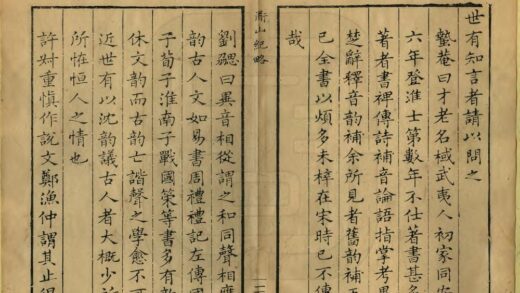 世有知言者請以問之
蟄庵曰才老名棫武夷人初家同安
六年登進士第數年不仕著書甚多
著者書裨傳詩補音論語指掌考異
楚辭釋音韵補余所見者舊韵補
已全書以煩多未梓在宋時已不傳
哉
山紀略
劉勰曰異音相從謂之和同聲相應
韵古人文如易書周禮禮記左傳國
子荀子淮南子戰國策等書多有韵
休文韵而古韵亡諧聲之學愈不可
近世有以沈韵議古人者大概少
所怪恒人之情也
許叔重慎作説文鄭漁仲謂其止得